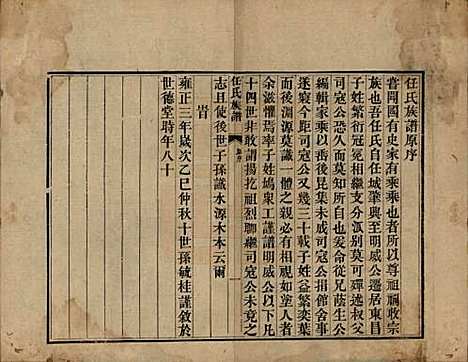 任氏族譜原序
嘗聞國有史家有乘乘也者所以尊祖禰收宗
族也吾任氏自任城肇興至明威公遷居東昌
子姓繁衍冠冕相繼支分派別莫可殫述叔父
司寇公恐久而無所知也爰命從兄蔭生公
編輯家乘以垂後昆集未成司寇公捐館舍事
遂寢今距司寇公幾三十載子姓益繁奕葉
而後淵源莫識一體之親必有相視如塗人者
余滋懼焉率子姓塢衆工謹譜明威公以下凡
十四世非敢謂揚扢祖烈聊繼司寇公未竟之
任氏族譜
志且使後世子孫識水源木本云爾
旹
雍正三年歲次乙巳仲秋十世孫毓桂謹敘於
世德堂時年八十